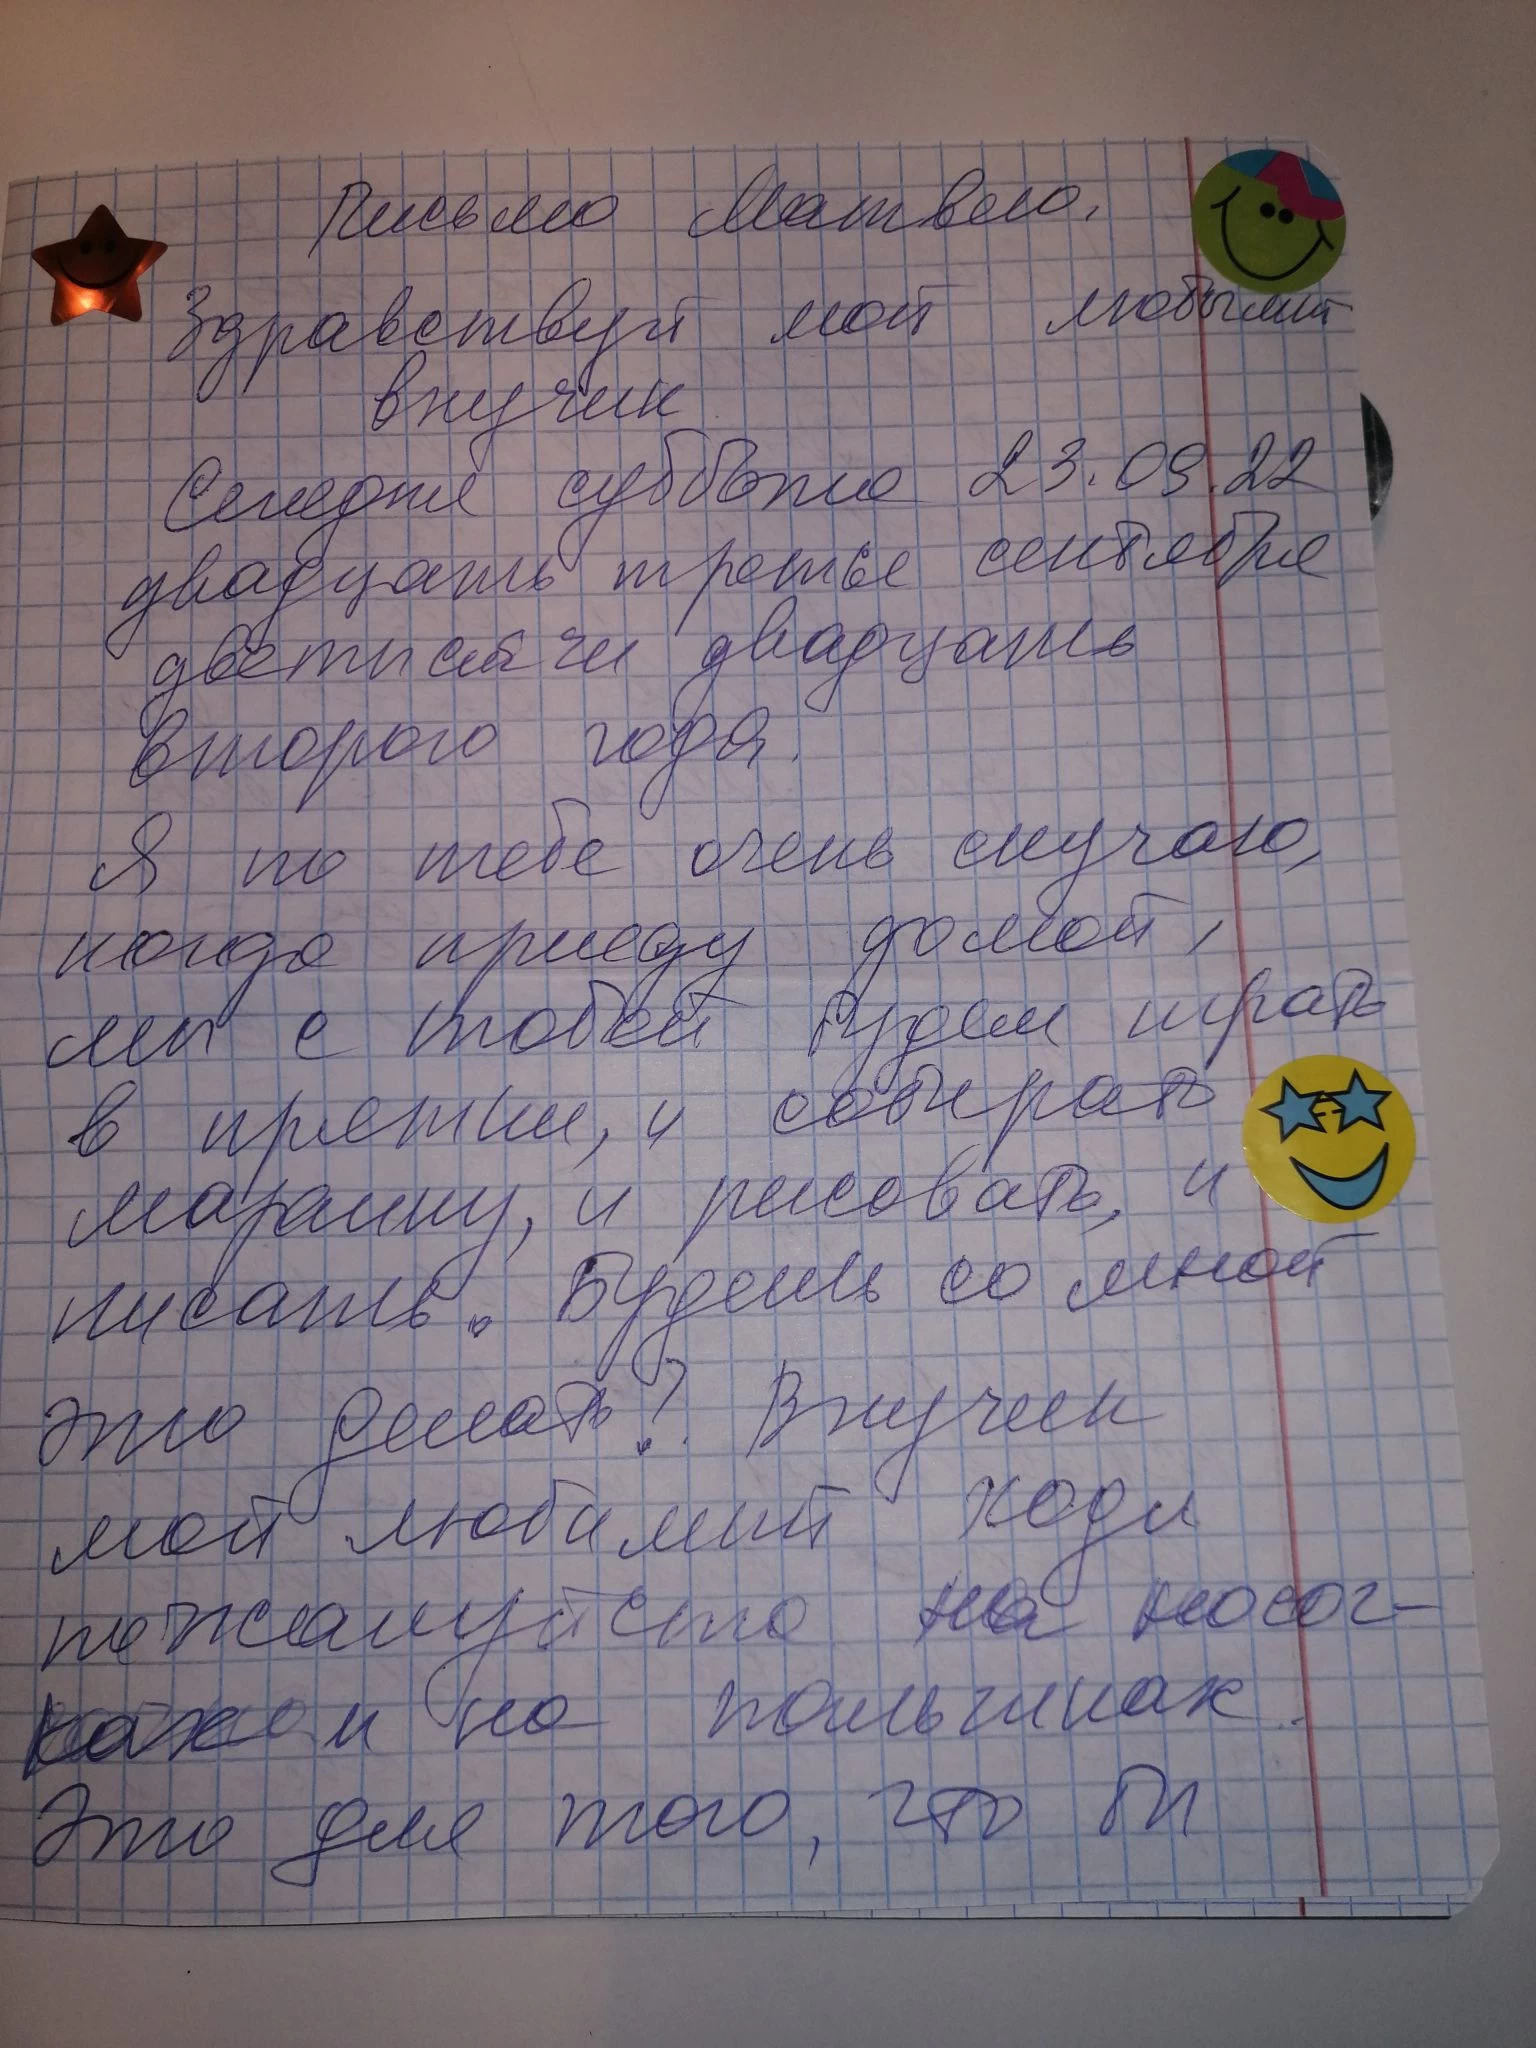 Письмо Матвею.
Здравствуй мой любымий
внучик
Сегодня суббота 23.09.22
двадцать третье сентября
дветысячи двадцать
второго года.
Я по тебе очень скучаю,
когда приеду домой,
мы с тобой будем играть
в прятки, и собирать
машину, и рисовать, и
писать. Будешь со мной
это делать? Внучик
мой любимий ходи
пожалуйсто на носоч-
ках и на пальчиках.
Это для того, что бы